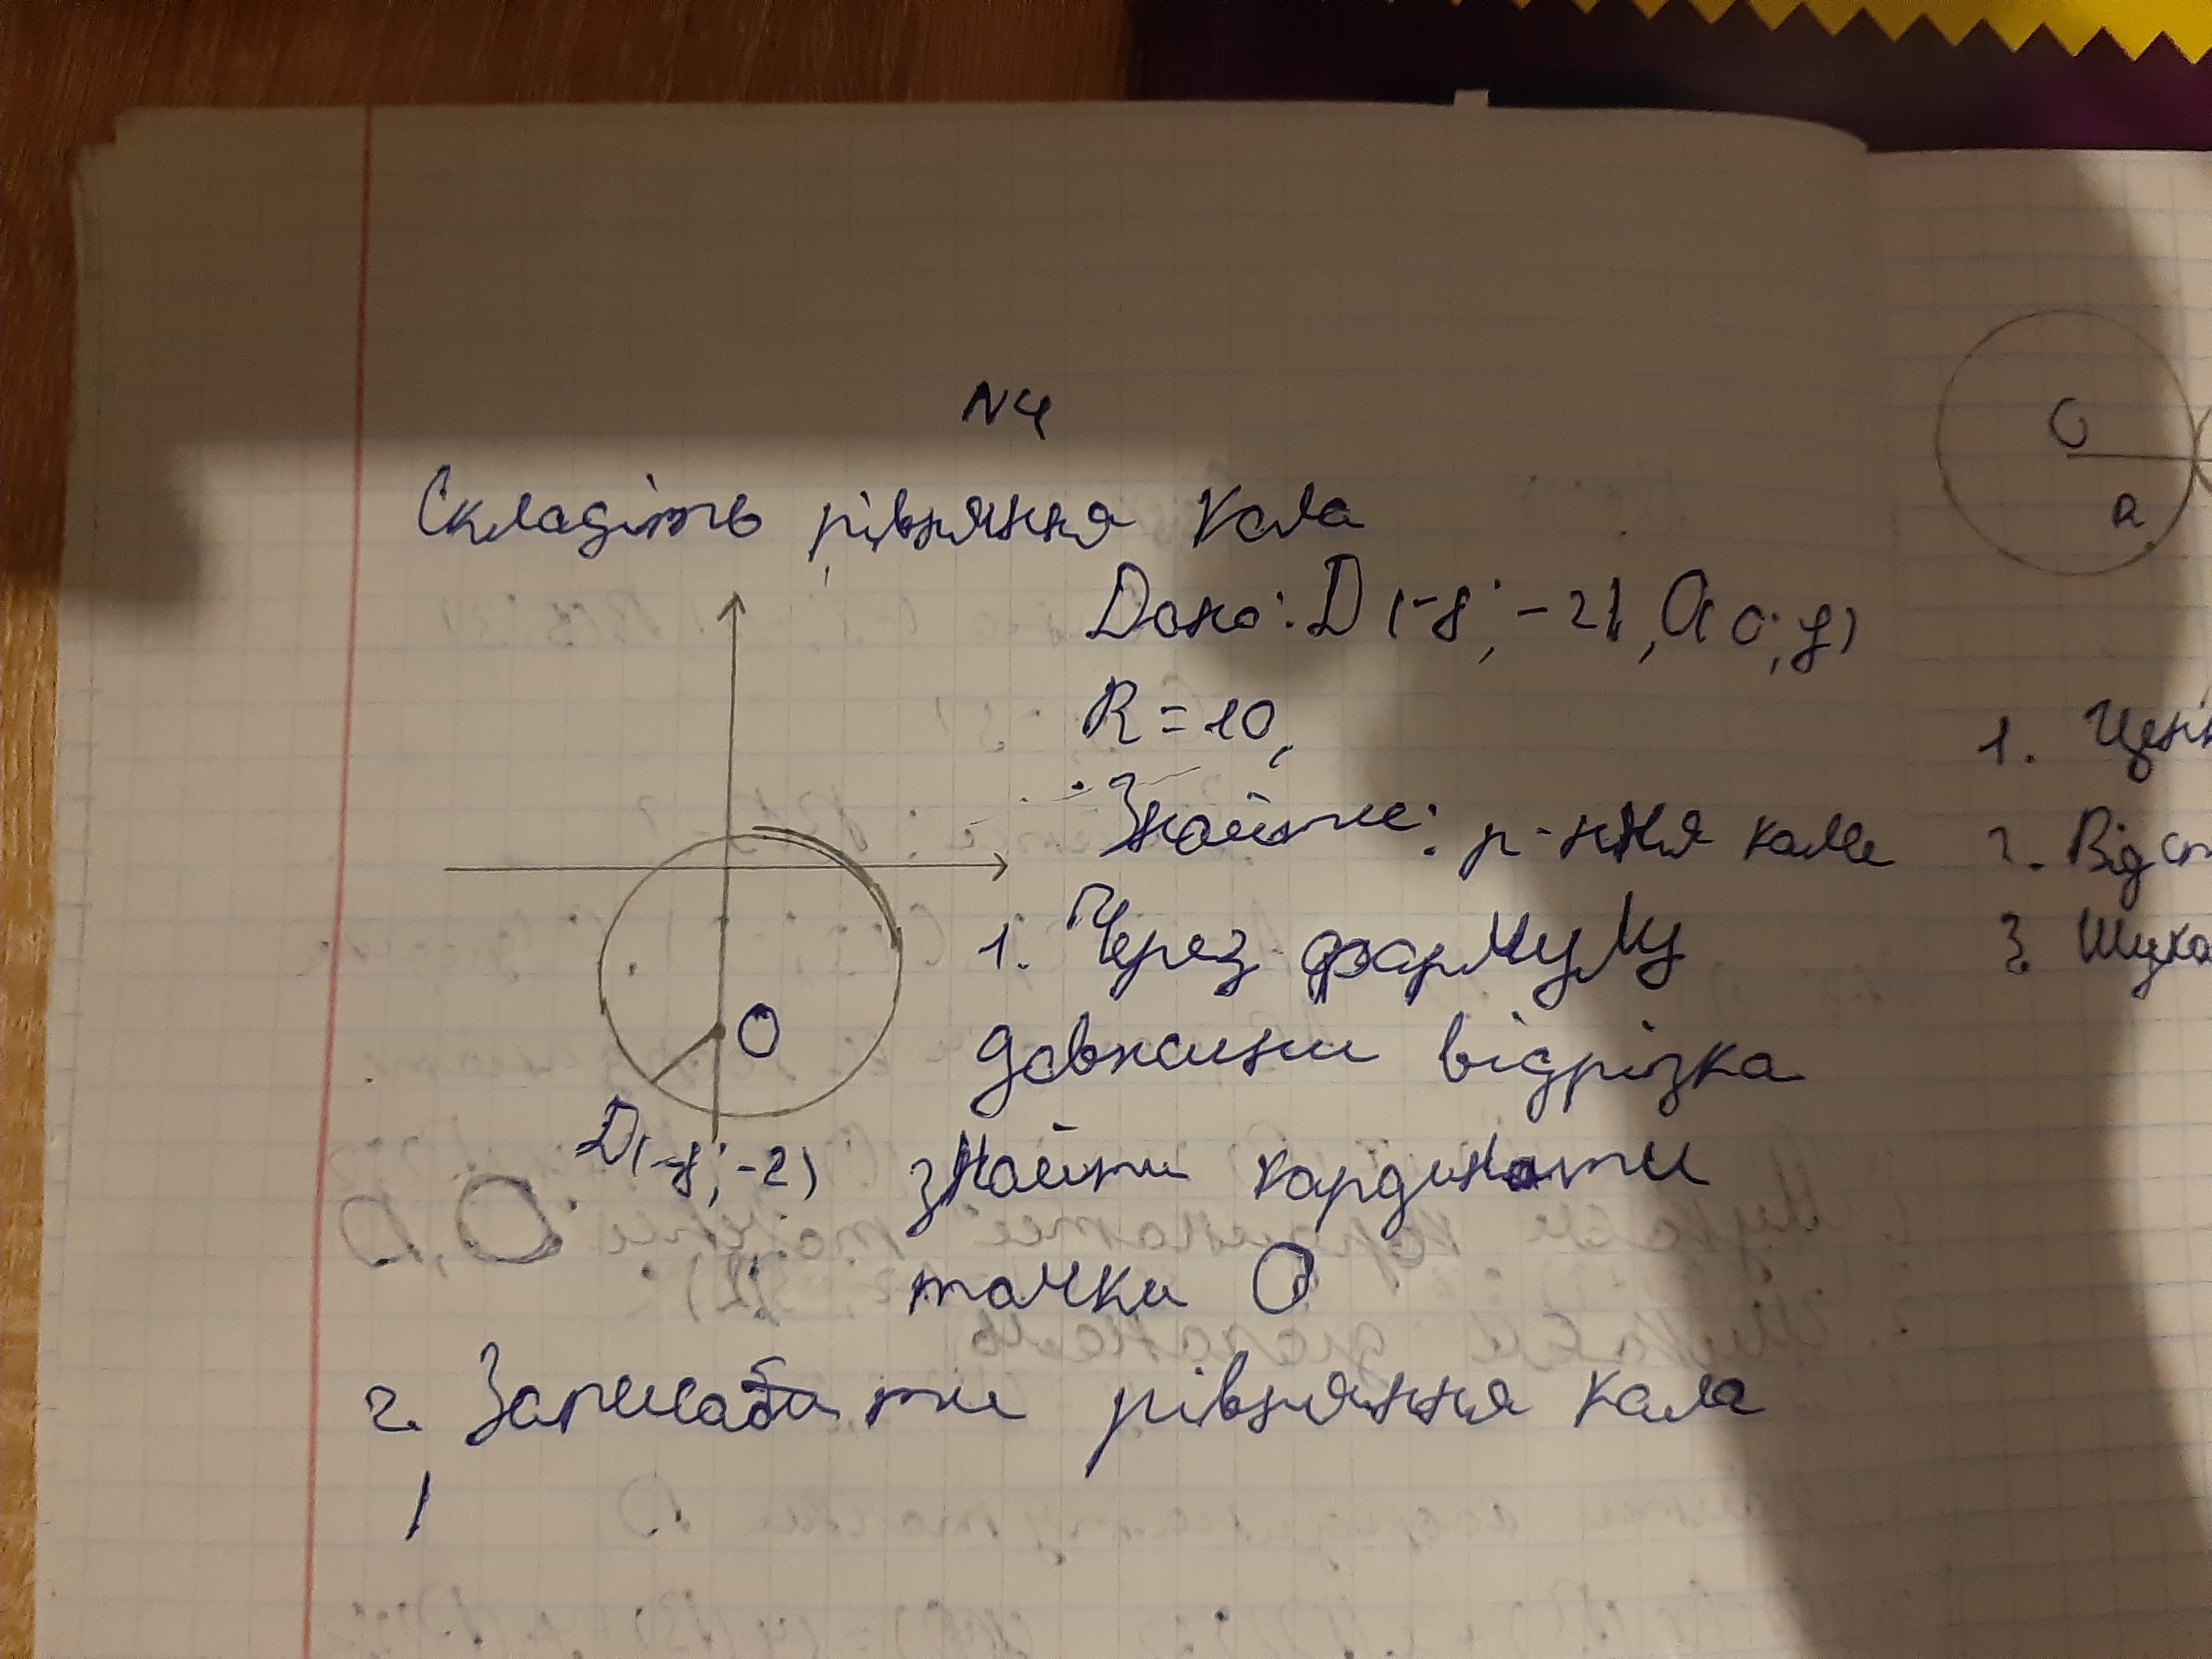 N4
Складіть рівняння кола
Дано: D(-8; -2), O(0; y)
R = 10,
Знайти: р-ння кола
1. Через формулу
довжини відрізка
D(-8; -2) знайти кординати
точки O
2. Записати рівняння кола
O
C
R
1.
2. Від
3. Шука